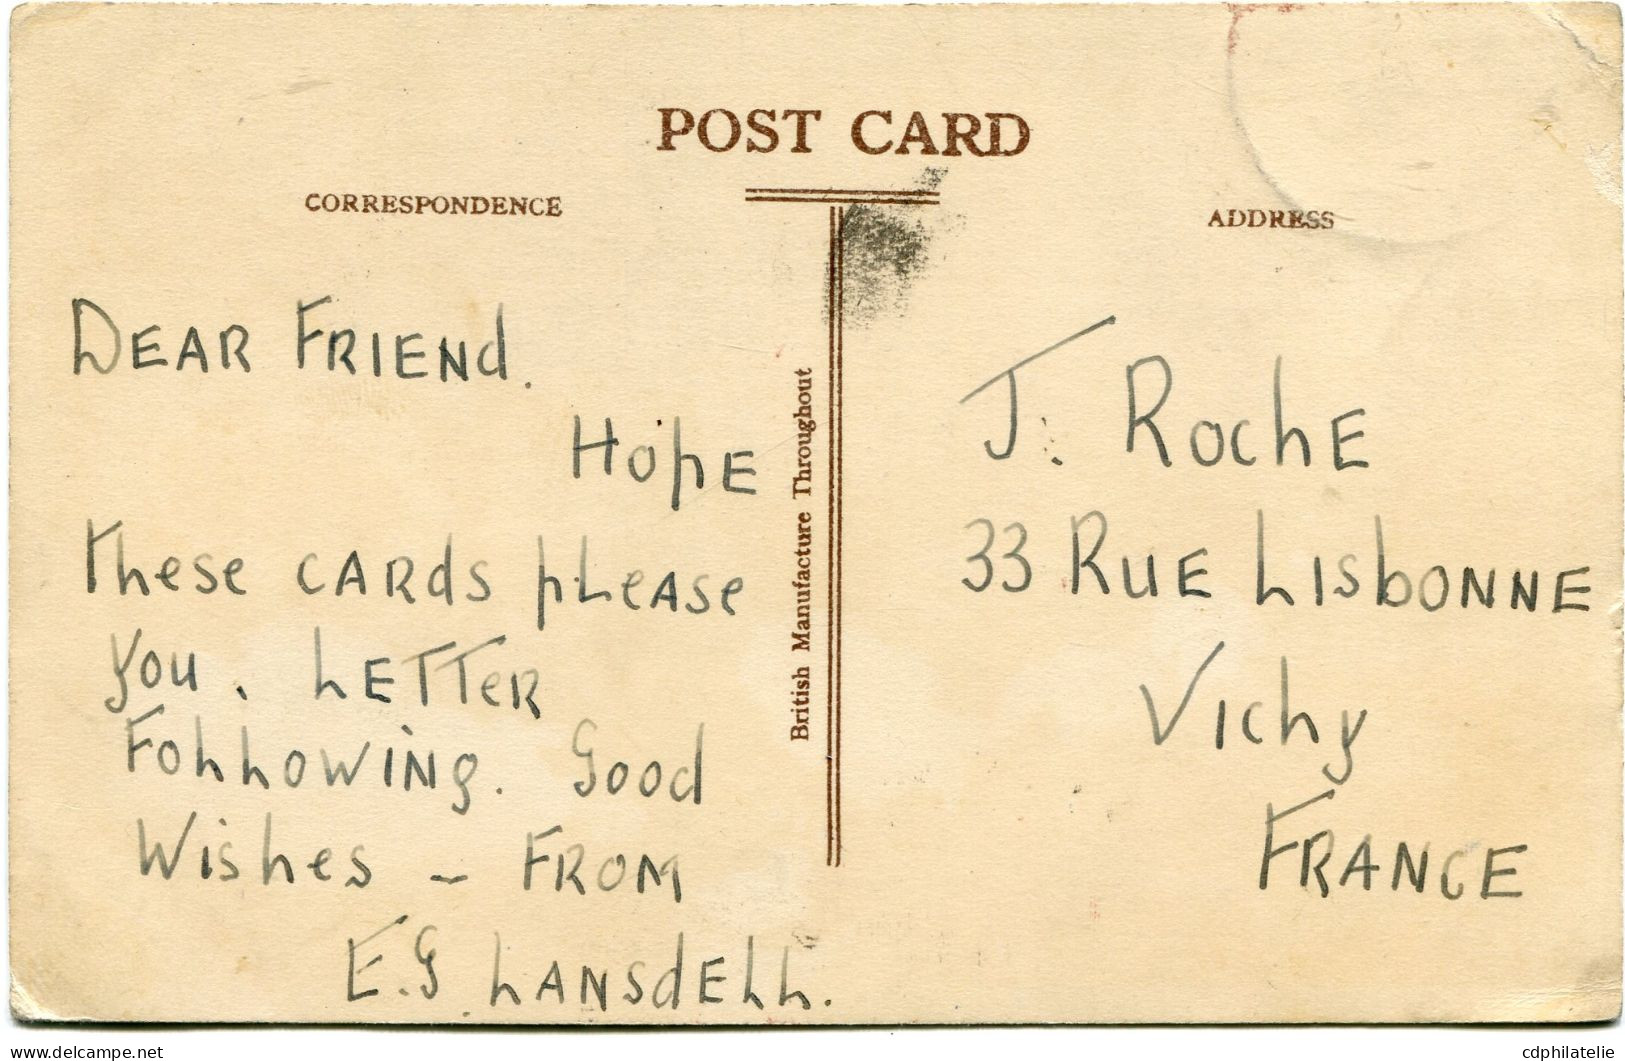 POST CARD
CORRESPONDENCE
ADDRESS
DEAR FRIENd.
HOpE
These CARds pLeAse
you. LETTeR
FOLLOWING. Good
Wishes – FROM
E.G LANSdELL.
British Manufacture Throughout
J. RochE
33 RUE LISbONNE
Vichy
FRANCE
delcampe.net
cdphilatelie